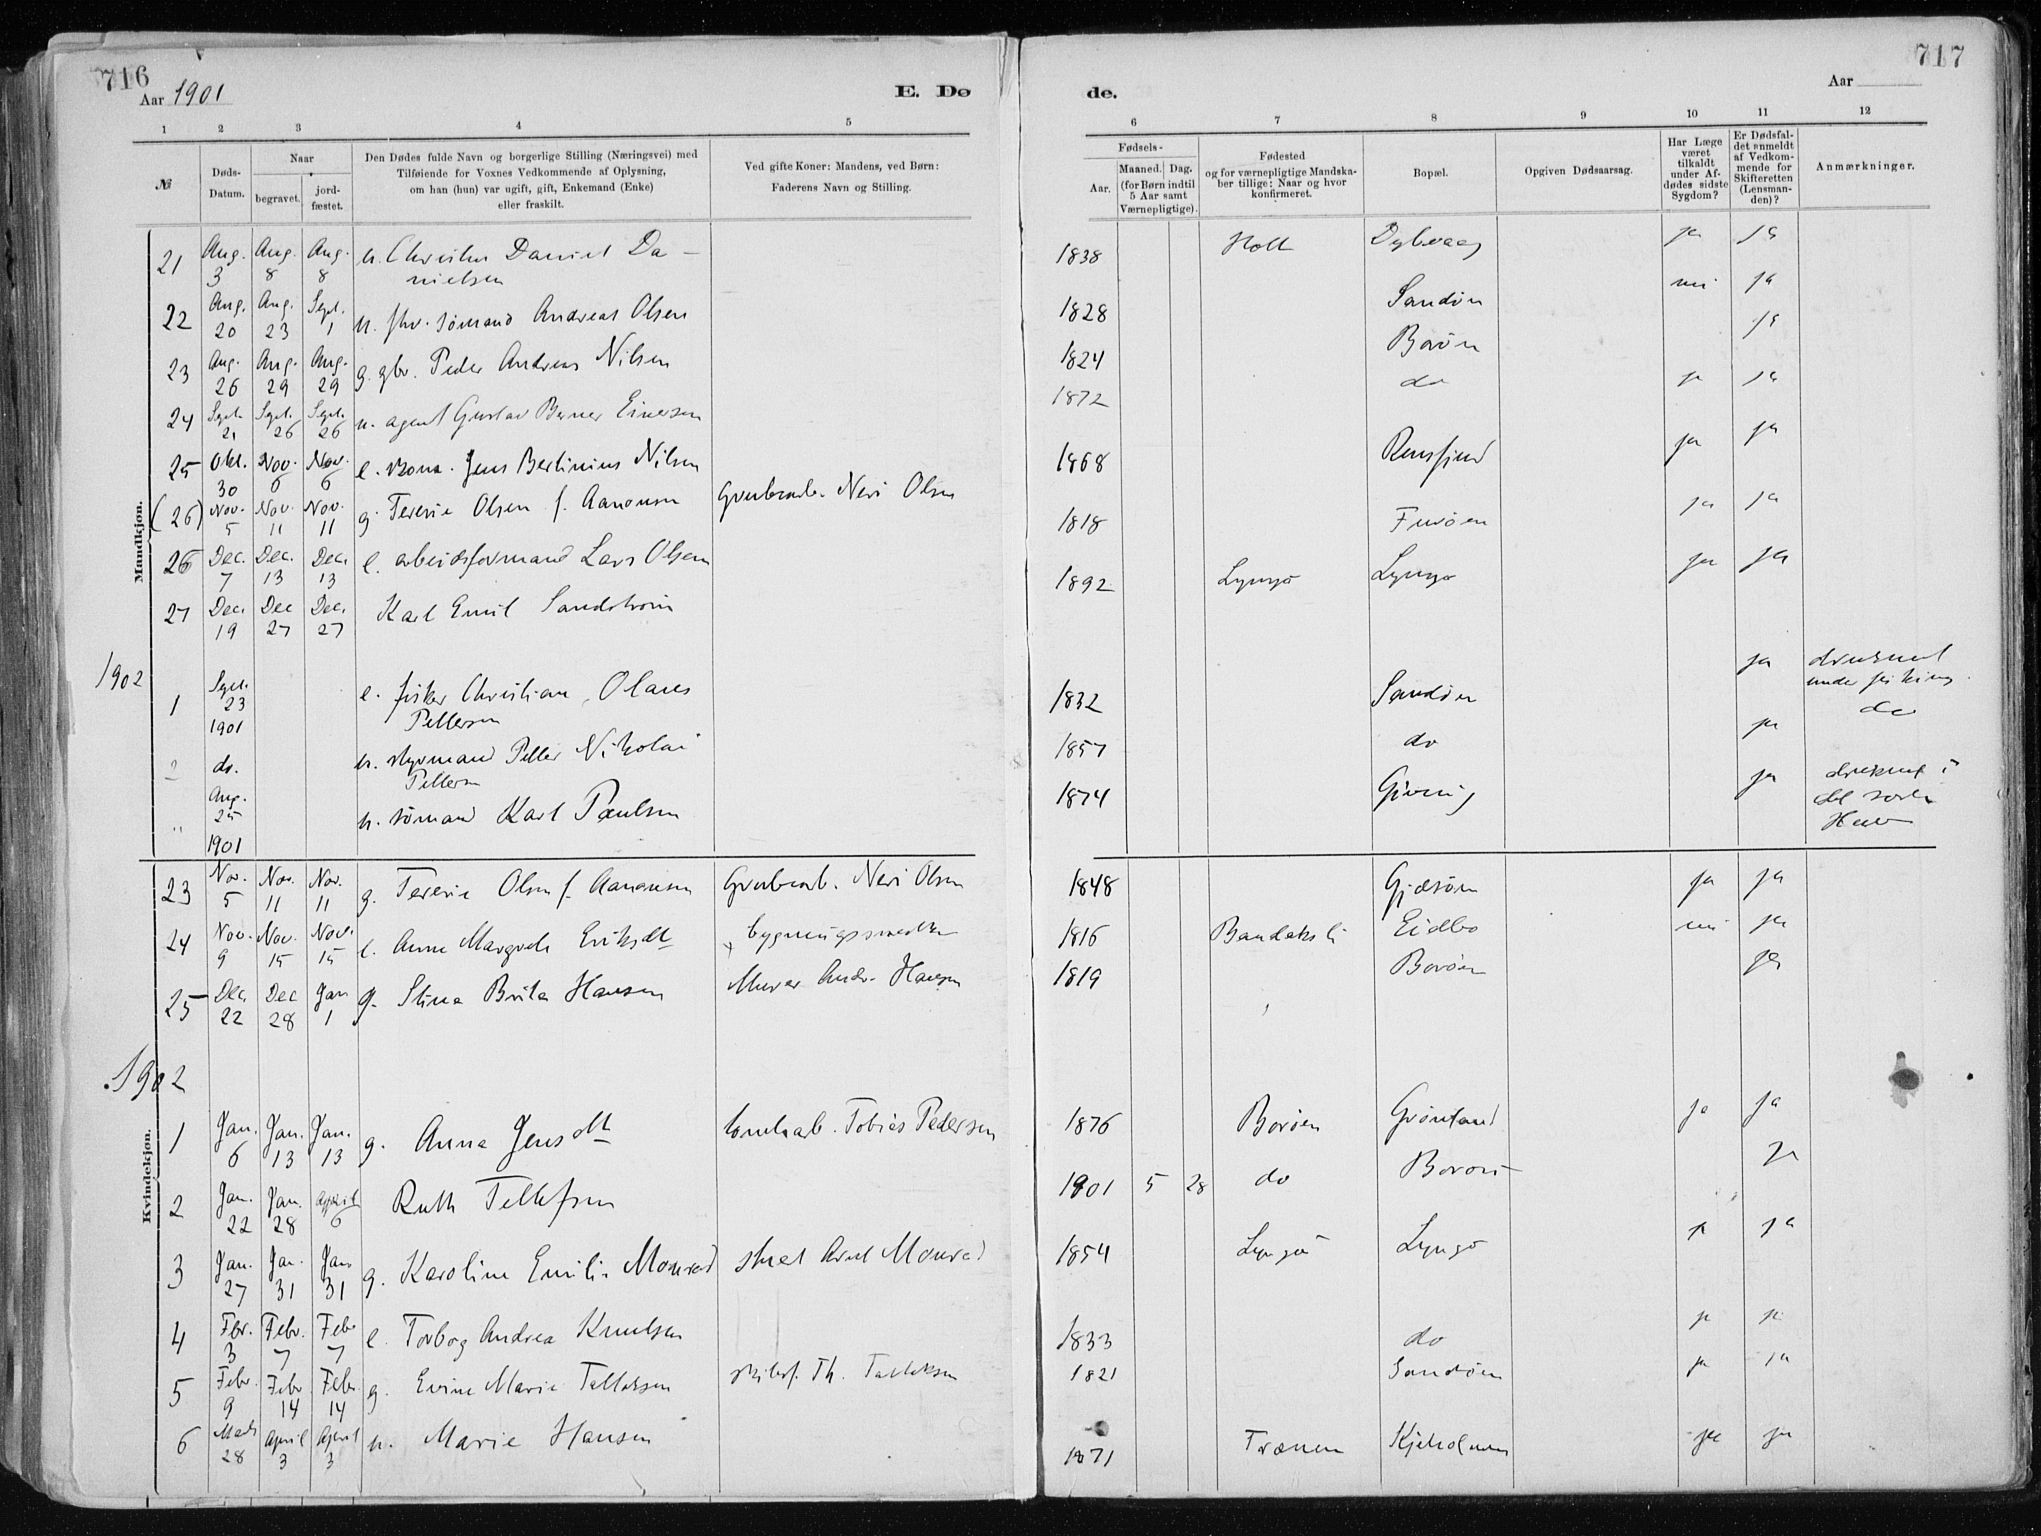 716
Aar 1901
E. Dø
1 2 3 4 5
№
Døds-Datum.
Naar
begravet.
jordfæstet.
Den Dødes fulde Navn og borgerlige Stilling (Næringsvei) med
Tilføiende for Voxnes Vedkommende af Oplysning,
om han (hun) var ugift, gift, Enkemand (Enke)
eller fraskilt.
Ved gifte Koner: Mandens, ved Børn:
Faderens Navn og Stilling.
Mandkjøn.
21 Aug. 3 Aug. 8 Aug. 8 Daniel Da-
nielsen
22 Aug. 20 Aug. 23 Sept. 1 u. fhv. sømand Andreas Olsen
23 Aug. 26 Aug. 29 Aug. 29 g. gbr. Peder Andreas Nilsen
24 Sept. 21 Sept. 26 Sept. 26 u. agent Gustav Berner Einersen
25 Okt. 30 Nov. 6 Nov. 6 e. Jens Bertinius Nilsen
(26) Nov. 5 Nov. 11 Nov. 11 g. Teresie Olsen f. Aanonsen Grubearb. Neri Olsen
26 Dec. 7 Dec. 13 Dec. 13 e. arbeidsformand Lars Olsen
27 Dec. 19 Dec 27 Dec. 27 Karl Emil Sandstrøm
1902
1 Sept. 23 1901 e. fisker Christian Olaus
Pettersen
2 do. u. styrmand Petter Nikolai
Pettersen
" Aug. 25 1901 u. sømand Karl Paulsen
23 Nov. 5 Nov. 11 Nov. 11 g. Teresie Olsen f. Aanonsen Grubearb. Neri Olsen
24 Nov. 9 Nov. 15 Nov. 15 e. Anne Margrete Eriksdt
25 Dec. 22 Dec 28 Jan 1 g. Stina Brita Hansen Murer Andr. Hansen
1902
Kvindekjøn.
1 Jan. 6 Jan. 13 Jan. 13 g. Anna Jensdt Tobias Pedersen
2 Jan. 22 Jan. 28 April 6 Ruth Tellefsen
3 Jan. 27 Jan. 31 Jan 31 g. Karoline Emilie Monrad Monrad
4 Fbr. 3 Febr. 7 Febr 7 e. Torbor Andrea Knutsen
5 Febr. 9 Febr 14 Febr. 14 g. Marie Tallaksen Th. Tallaksen
6 28 April 3 April 3 u. Marie Hansen
717
Aar
de.
6 7 8 9 10 11 12
Fødsels-
Aar.
Maaned. Dag.
(for Børn indtil
5 Aar samt
Værnepligtige).
Fødested
og for værnepligtige Mandska-
ber tillige: Naar og hvor
konfirmeret.
Bopæl.
Opgiven Dødsaarsag.
Har Læge
været
tilkaldt
under Af-
dødes sidste
Sygdom?
Er Dødsfal-
det anmeldt
af Vedkom-
mende for
Skifteretten
(Lensman-
den)?
Anmærkninger.
1838 Holt Dybvaag ja ja
1828 Sandøen nei ja
1824 Borøen ja
1872 do ja ja
1868 ja ja
1818 Furøen ja ja
1892 Lyngør Lyngør ja ja
1832 Sandøen ja druknet
under fiskning.
1857 do ja do
1874 Gjeving ja druknet i
det sorte
Hav
1848 ja ja
1816 Bandaksli Eidbo nei ja
1819 Borøen ja
1876 Borøen Grønland ja ja
1901 5 28 do Borøen ja
1854 Lyngør Lyngør ja ja
1833 do ja ja
1821 Sandøen ja ja
1871 Kjeholmen ja ja